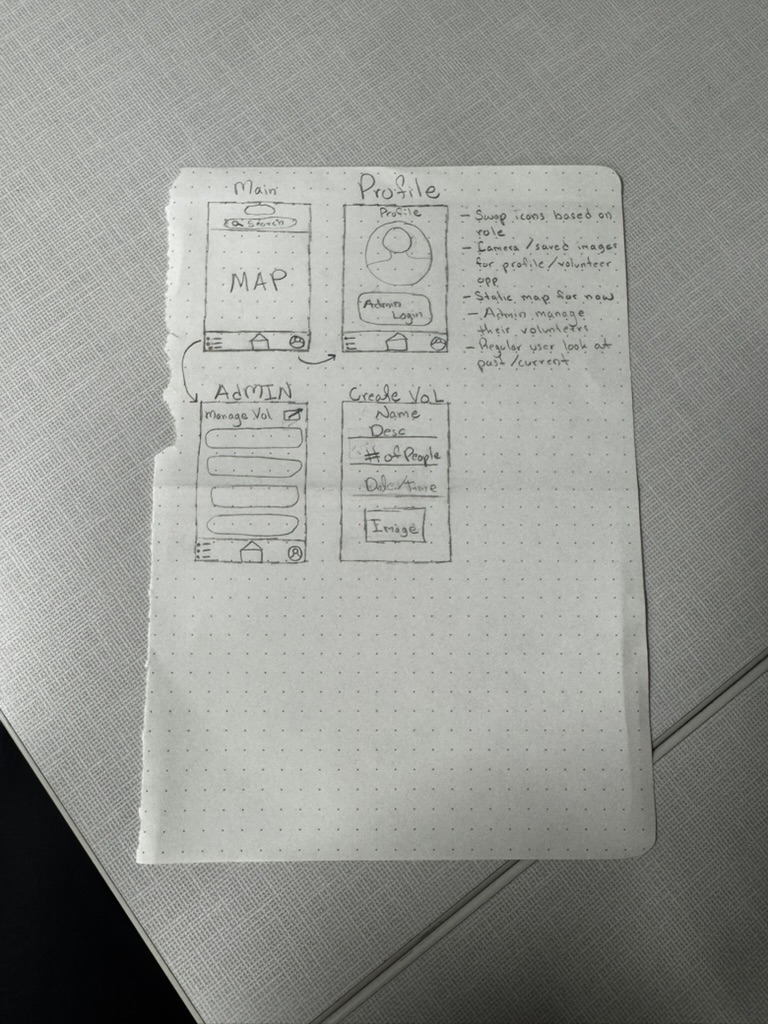 Main
Search
MAP
Profile
Profile
Admin
Login
- Swap icons based on
role
- Camera/saved images
for profile/volunteer
app
- Static map for now
- Admin manage
their volunteers
- Regular user look at
past/current
ADMIN
Manage Vol
Create Vol
Name
Desc
# of People
Date/time
Image